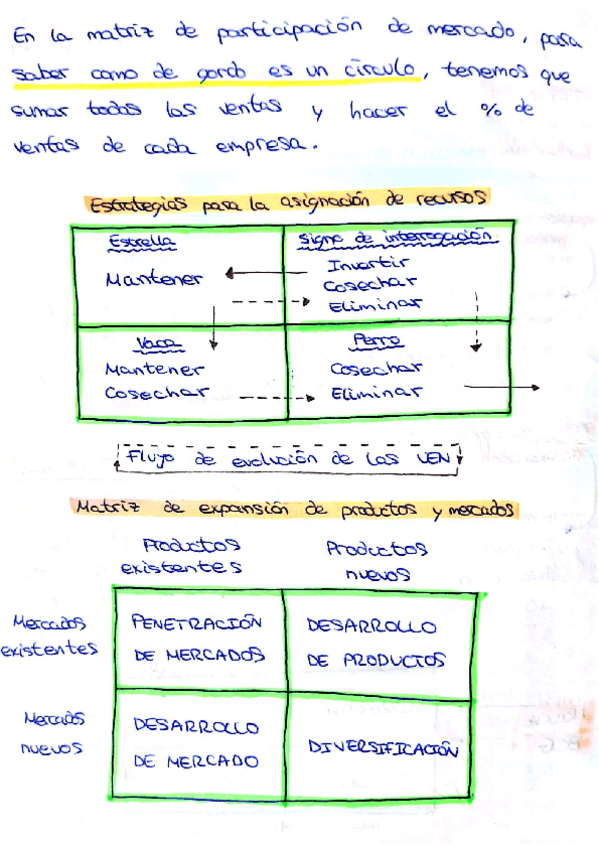 En la matriz de participación de mercado, para
saber como de gordo es un círculo, tenemos que
sumar todas las ventas y hacer el % de
ventas de cada empresa.
Estrategias para la asignación de recursos
Estrella
Mantener
Signo de interrogación
Invertir
Cosechar
Eliminar
Vaca
Mantener
Cosechar
Perro
Cosechar
Eliminar
Flujo de evolución de las UEN
Matriz de expansión de productos y mercados
Productos existentes
Productos nuevos
Mercados existentes
PENETRACIÓN
DE MERCADOS
DESARROLLO
DE PRODUCTOS
Mercados nuevos
DESARROLLO
DE MERCADO
DIVERSIFICACIÓN